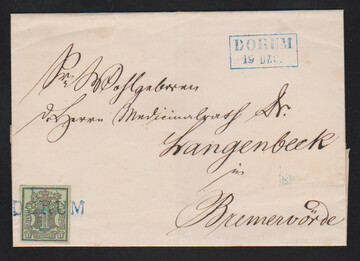 DORUM
19 DEC.
Sr. Wohlgeboren
d. Herrn Medicinalrath Dr.
Langenbeck
in
Bremervörde
DORUM
1